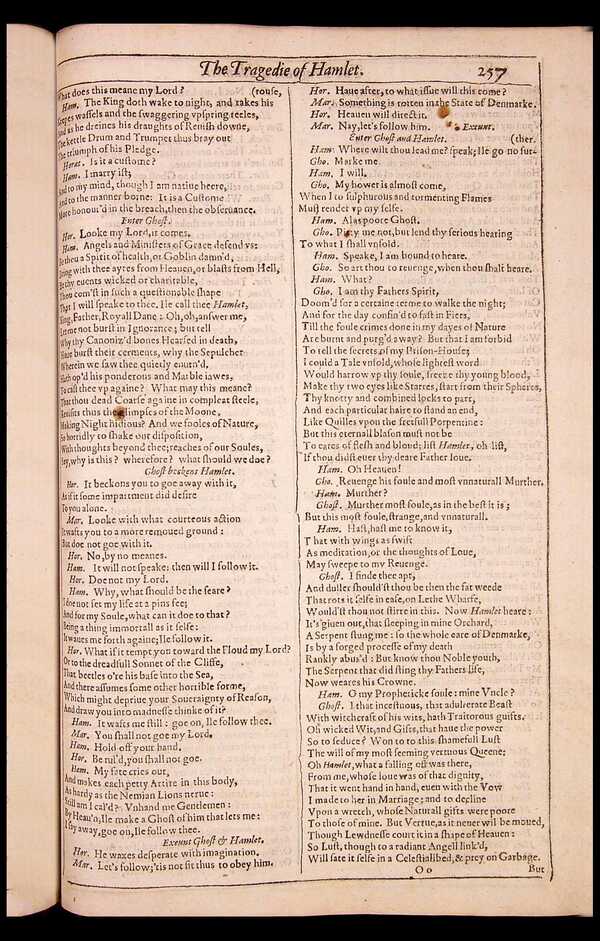 The Tragedie of Hamlet. 257
What does this meane my Lord? (rouse,
Ham. The King doth wake to night, and takes his
Keepes wassels and the swaggering vpspring reeles,
And as he dreines his draughts of Renish downe,
The kettle Drum and Trumpet thus bray out
The triumph of his Pledge.
Horat. Is it a custome?
Ham. I marry ist;
And to my mind, though I am natiue heere,
And to the manner borne: It is a Custome
More honour'd in the breach, then the obseruance.
Enter Ghost.
Hor. Looke my Lord, it comes.
Ham. Angels and Ministers of Grace defend vs:
Be thou a Spirit of health, or Goblin damn'd,
Bring with thee ayres from Heauen, or blasts from Hell,
Be thy euents wicked or charitable,
Thou com'st in such a questionable shape
That I will speake to thee. Ile call thee Hamlet,
King, Father, Royall Dane: Oh, oh, answer me,
Let me not burst in Ignorance; but tell
Why thy Canoniz'd bones Hearsed in death,
Haue burst their cerments, why the Sepulcher
Wherein we saw thee quietly enurn'd,
Hath op'd his ponderous and Marble iawes,
To cast thee vp againe? What may this meane?
That thou dead Coarse againe in compleat steele,
Reuisits thus the glimpses of the Moone,
Making Night hidious? And we fooles of Nature,
So horridly to shake our disposition,
With thoughts beyond thee; reaches of our Soules,
Say, why is this? wherefore? what should we doe?
Ghost beckens Hamlet.
Hor. It beckons you to goe away with it,
As if it some impartment did desire
To you alone.
Mar. Looke with what courteous action
It wafts you to a more remoued ground:
But doe not goe with it.
Hor. No, by no meanes.
Ham. It will not speake: then will I follow it.
Hor. Doe not my Lord.
Ham. Why, what should be the feare?
I doe not set my life at a pins fee;
And for my Soule, what can it doe to that?
Being a thing immortall as it selfe:
It waues me forth againe; Ile follow it.
Hor. What if it tempt you toward the Floud my Lord?
Or to the dreadfull Sonnet of the Cliffe,
That beetles o're his base into the Sea,
And there assumes some other horrible forme,
Which might depriue your Soueraignty of Reason,
And draw you into madnesse thinke of it?
Ham. It wafts me still: goe on, Ile follow thee.
Mar. You shall not goe my Lord.
Ham. Hold off your hand.
Hor. Be rul'd, you shall not goe.
Ham. My fate cries out,
And makes each petty Artire in this body,
As hardy as the Nemian Lions nerue:
Still am I cal'd? Vnhand me Gentlemen:
By Heau'n, Ile make a Ghost of him that lets me:
I say away, goe on, Ile follow thee.
Exeunt Ghost & Hamlet.
Hor. He waxes desperate with imagination.
Mar. Let's follow; 'tis not fit thus to obey him.
Hor. Haue after, to what issue will this come?
Mar. Something is rotten in the State of Denmarke.
Hor. Heauen will direct it.
Mar. Nay, let's follow him. Exeunt.
Enter Ghost and Hamlet. (ther.
Ham. Where wilt thou lead me? speak; Ile go no fur-
Gho. Marke me.
Ham. I will.
Gho. My hower is almost come,
When I to sulphurous and tormenting Flames
Must render vp my selfe.
Ham. Alas poore Ghost.
Gho. Pitty me not, but lend thy serious hearing
To what I shall vnfold.
Ham. Speake, I am bound to heare.
Gho. So art thou to reuenge, when thou shalt heare.
Ham. What?
Gho. I am thy Fathers Spirit,
Doom'd for a certaine terme to walke the night;
And for the day confin'd to fast in Fiers,
Till the foule crimes done in my dayes of Nature
Are burnt and purg'd away? But that I am forbid
To tell the secrets of my Prison-House;
I could a Tale vnfold, whose lightest word
Would harrow vp thy soule, freeze thy young blood,
Make thy two eyes like Starres, start from their Spheres,
Thy knotty and combined locks to part,
And each particular haire to stand an end,
Like Quilles vpon the fretfull Porpentine:
But this eternall blason must not be
To eares of flesh and bloud; list Hamlet, oh list,
If thou didst euer thy deare Father loue.
Ham. Oh Heauen!
Gho. Reuenge his foule and most vnnaturall Murther.
Ham. Murther?
Ghost. Murther most foule, as in the best it is;
But this most foule, strange, and vnnaturall.
Ham. Hast, hast me to know it,
That with wings as swift
As meditation, or the thoughts of Loue,
May sweepe to my Reuenge.
Ghost. I finde thee apt,
And duller should'st thou be then the fat weede
That rots it selfe in ease, on Lethe Wharfe,
Would'st thou not stirre in this. Now Hamlet heare:
It's giuen out, that sleeping in mine Orchard,
A Serpent stung me: so the whole eare of Denmarke,
Is by a forged processe of my death
Rankly abus'd: But know thou Noble youth,
The Serpent that did sting thy Fathers life,
Now weares his Crowne.
Ham. O my Propheticke soule: mine Vncle?
Ghost. I that incestuous, that adulterate Beast
With witchcraft of his wits, hath Traitorous guifts.
Oh wicked Wit, and Gifts, that haue the power
So to seduce? Won to to this shamefull Lust
The will of my most seeming vertuous Queene:
Oh Hamlet, what a falling off was there,
From me, whose loue was of that dignity,
That it went hand in hand, euen with the Vow
I made to her in Marriage; and to decline
Vpon a wretch, whose Naturall gifts were poore
To those of mine. But Vertue, as it neuer wil be moued,
Though Lewdnesse court it in a shape of Heauen:
So Lust, though to a radiant Angell link'd,
Will sate it selfe in a Celestiall bed, & prey on Garbage.
O o But